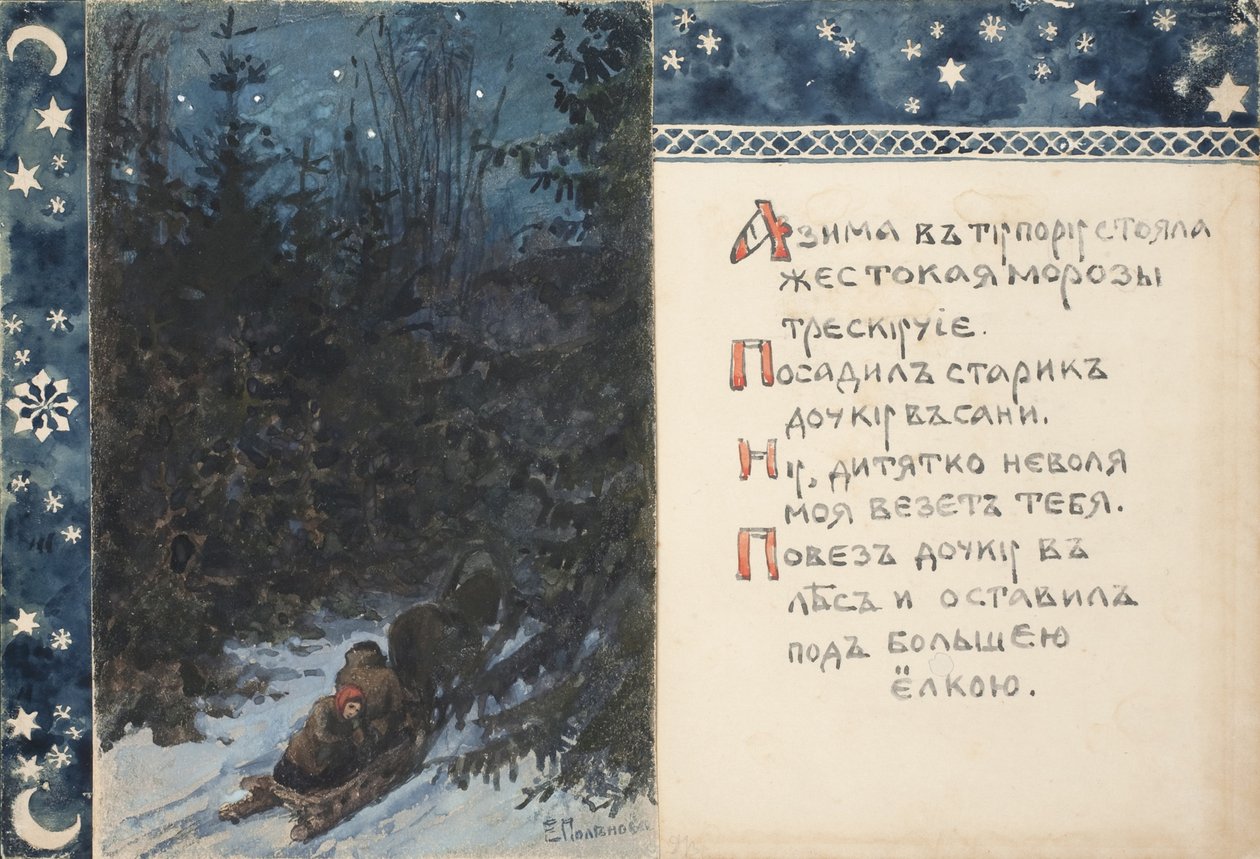 Е Полѣнова
А зима въ ту пору стояла
жестокая морозы
трескучіе.
Посадилъ старикъ
дочку въ сани.
Ну, дитятко неволя
моя везетъ тебя.
Повезъ дочку въ
лѣсъ и оставилъ
подъ большею
ёлкою.